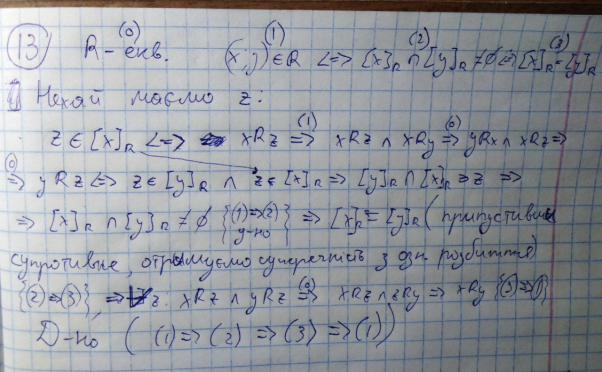 (13) R - екв. (0) (x;y) ∈ R (1) <=> [x]_R ∩ [y]_R ≠ ∅ (2) <=> [x]_R = [y]_R (3)
Нехай маємо z:
z ∈ [x]_R <=> xRz =>(1) xRz ∧ xRy =>(0) yRx ∧ xRz =>
=>(0) yRz <=> z ∈ [y]_R ∧ z ∈ [x]_R => [y]_R ∩ [x]_R ∋ z =>
=> [x]_R ∩ [y]_R ≠ ∅ {(1)=>(2) д-но} => [x]_R = [y]_R (припустивши
супротивне, отримуємо суперечність з озн. розбиття)
{(2)=>(3)}, => z: xRz ∧ yRz =>(0) xRz ∧ zRy => xRy {(3)=>(1)}
Д-но ((1) => (2) => (3) => (1))